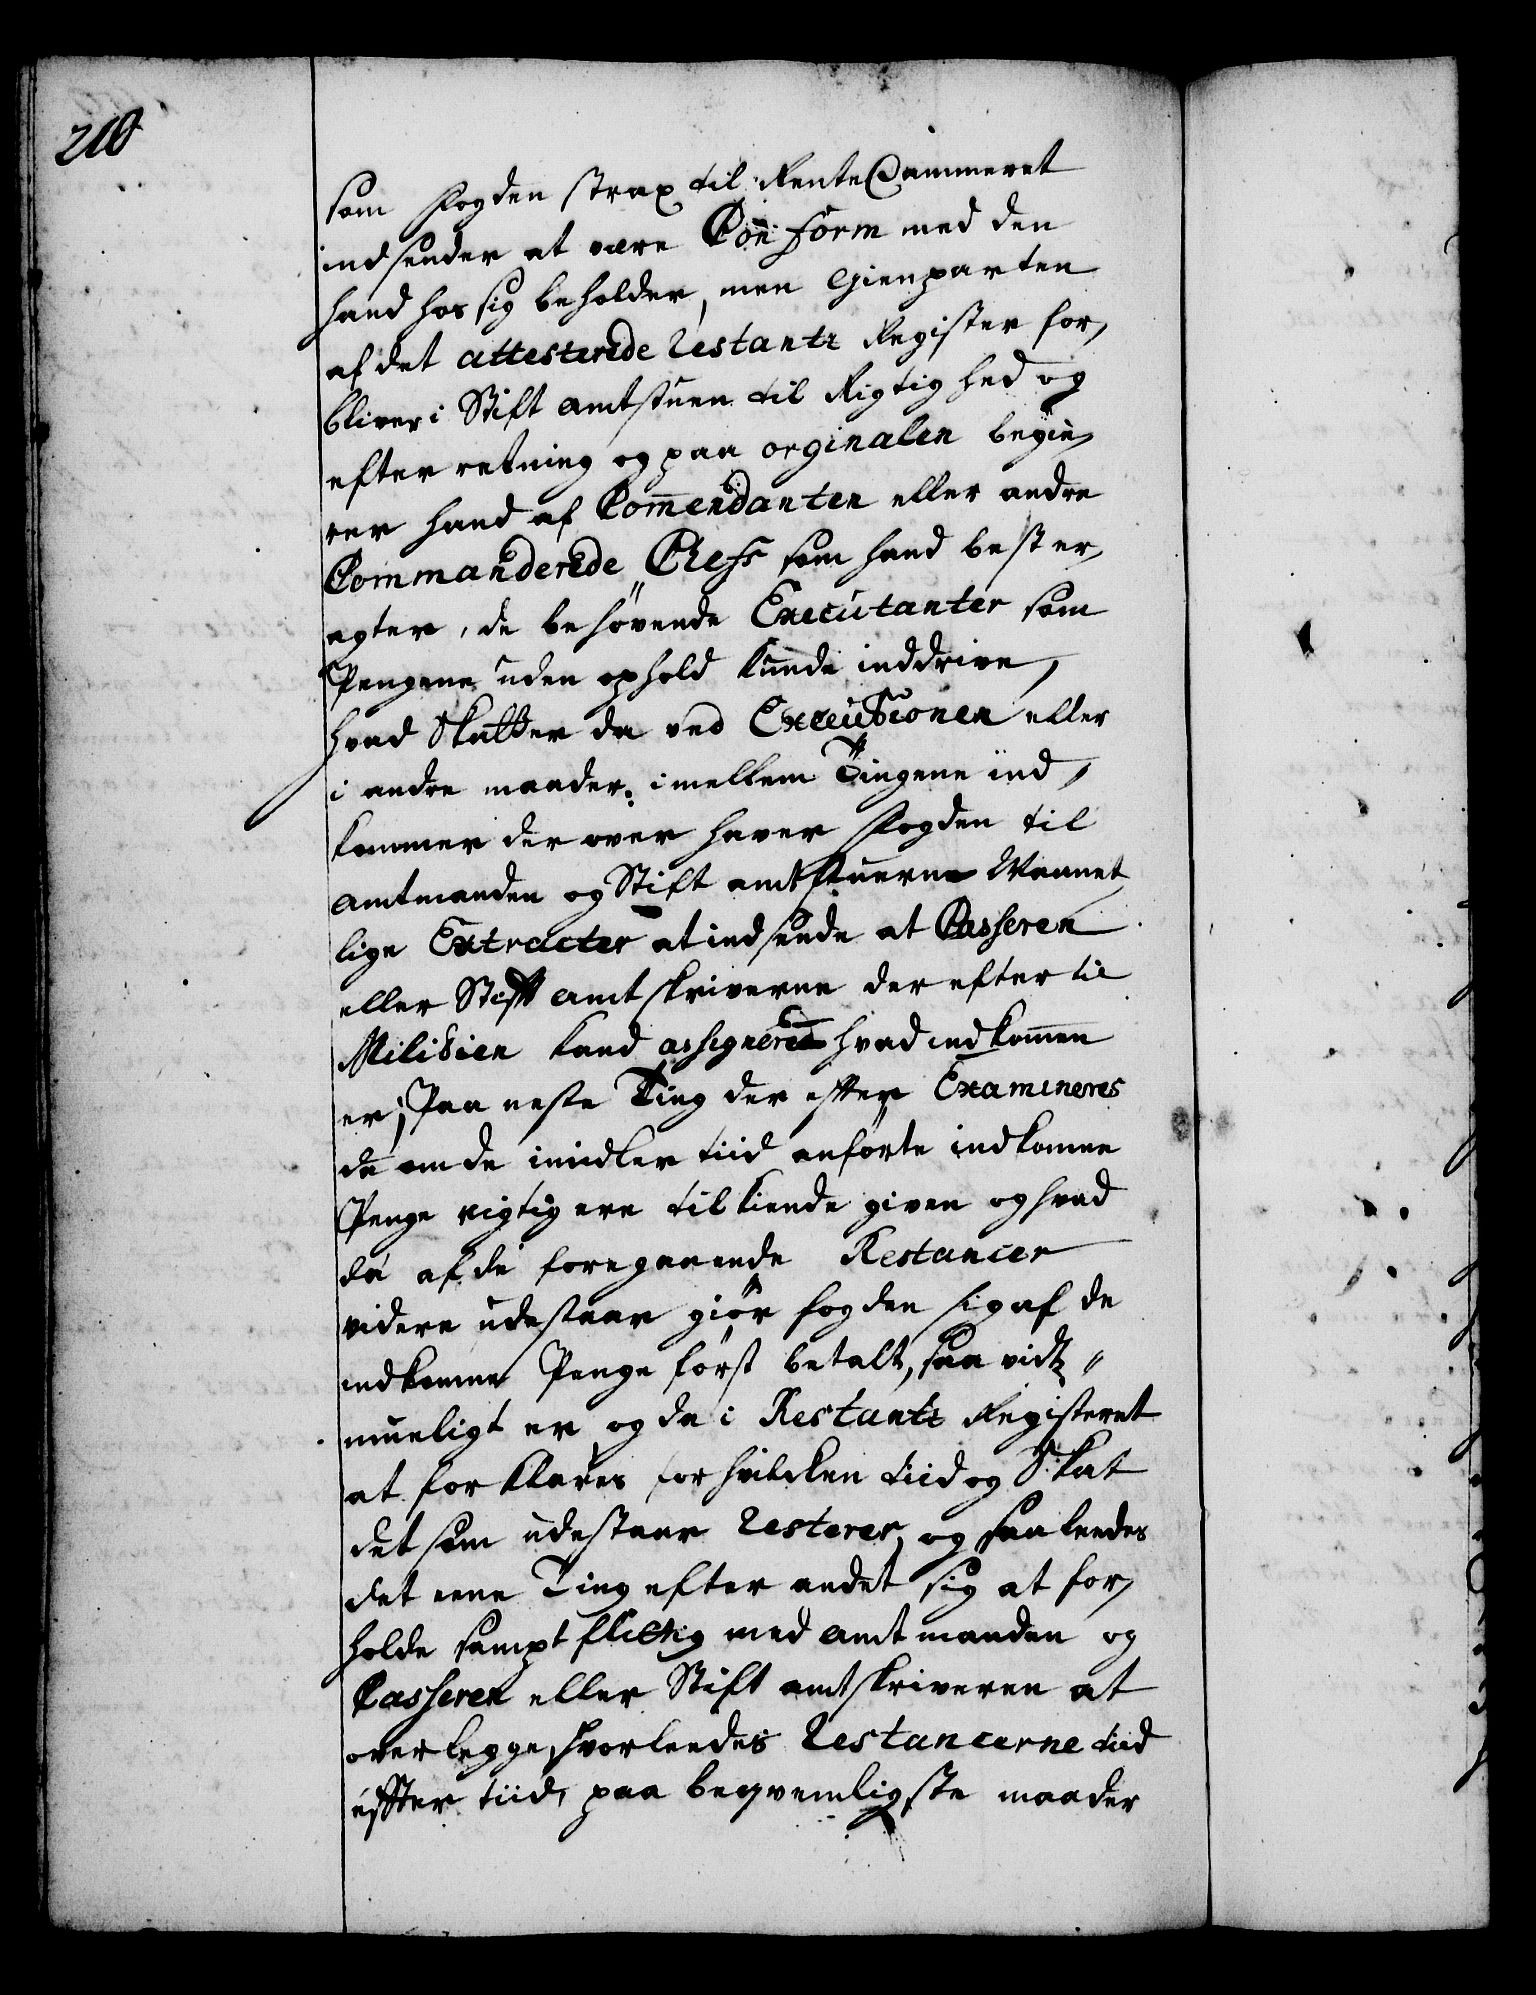 210
som Fogden strax til RenteCammeret
indsender at være Conform med den
hand hos sig beholder, men Gienparten
af det attesterede Restantz Register for,
bliver i Stift amtstuen til Rigtighed og
efterretning og paa orginalen begie,
rer hand af Commendanten eller andre
Commanderede Chefs som hand best er,
agter, de behøvende Executanter som
Pengene uden ophold kunde inddrive,
hvad Skatter da ved Executionen eller
i andre maader, imellem Tingene ind,
kommer der over haver Fogden til
amtmanden og Stift amtstuerne Maanet,
lige Extracter at indsende at Casseren
eller Stift amtskriverne der efter til
Militien kand assignered hvad indkommen
er; Paa neste Ting der effter Examineres
da om de imidler tiid anførte indkomne
Penge rigtig ere tilkiende given og hvad
da af de foregaaende Restancer
videre udestaar giør fogden sig af de
indkomne Penge først betalt, saa vidt
mueligt er og da i Restantz Registeret
at forklares for hvilcken tiid og Skat
det som udestaar Resterer, og saaleedes
det eene Ting efter andet sig at for,
holde sampt flittig med amtmanden og
Casseren eller Stift amtskriveren at
overlegge, hvorleedes Restancerne tiid
effter tiid, paa beqvemligste maader